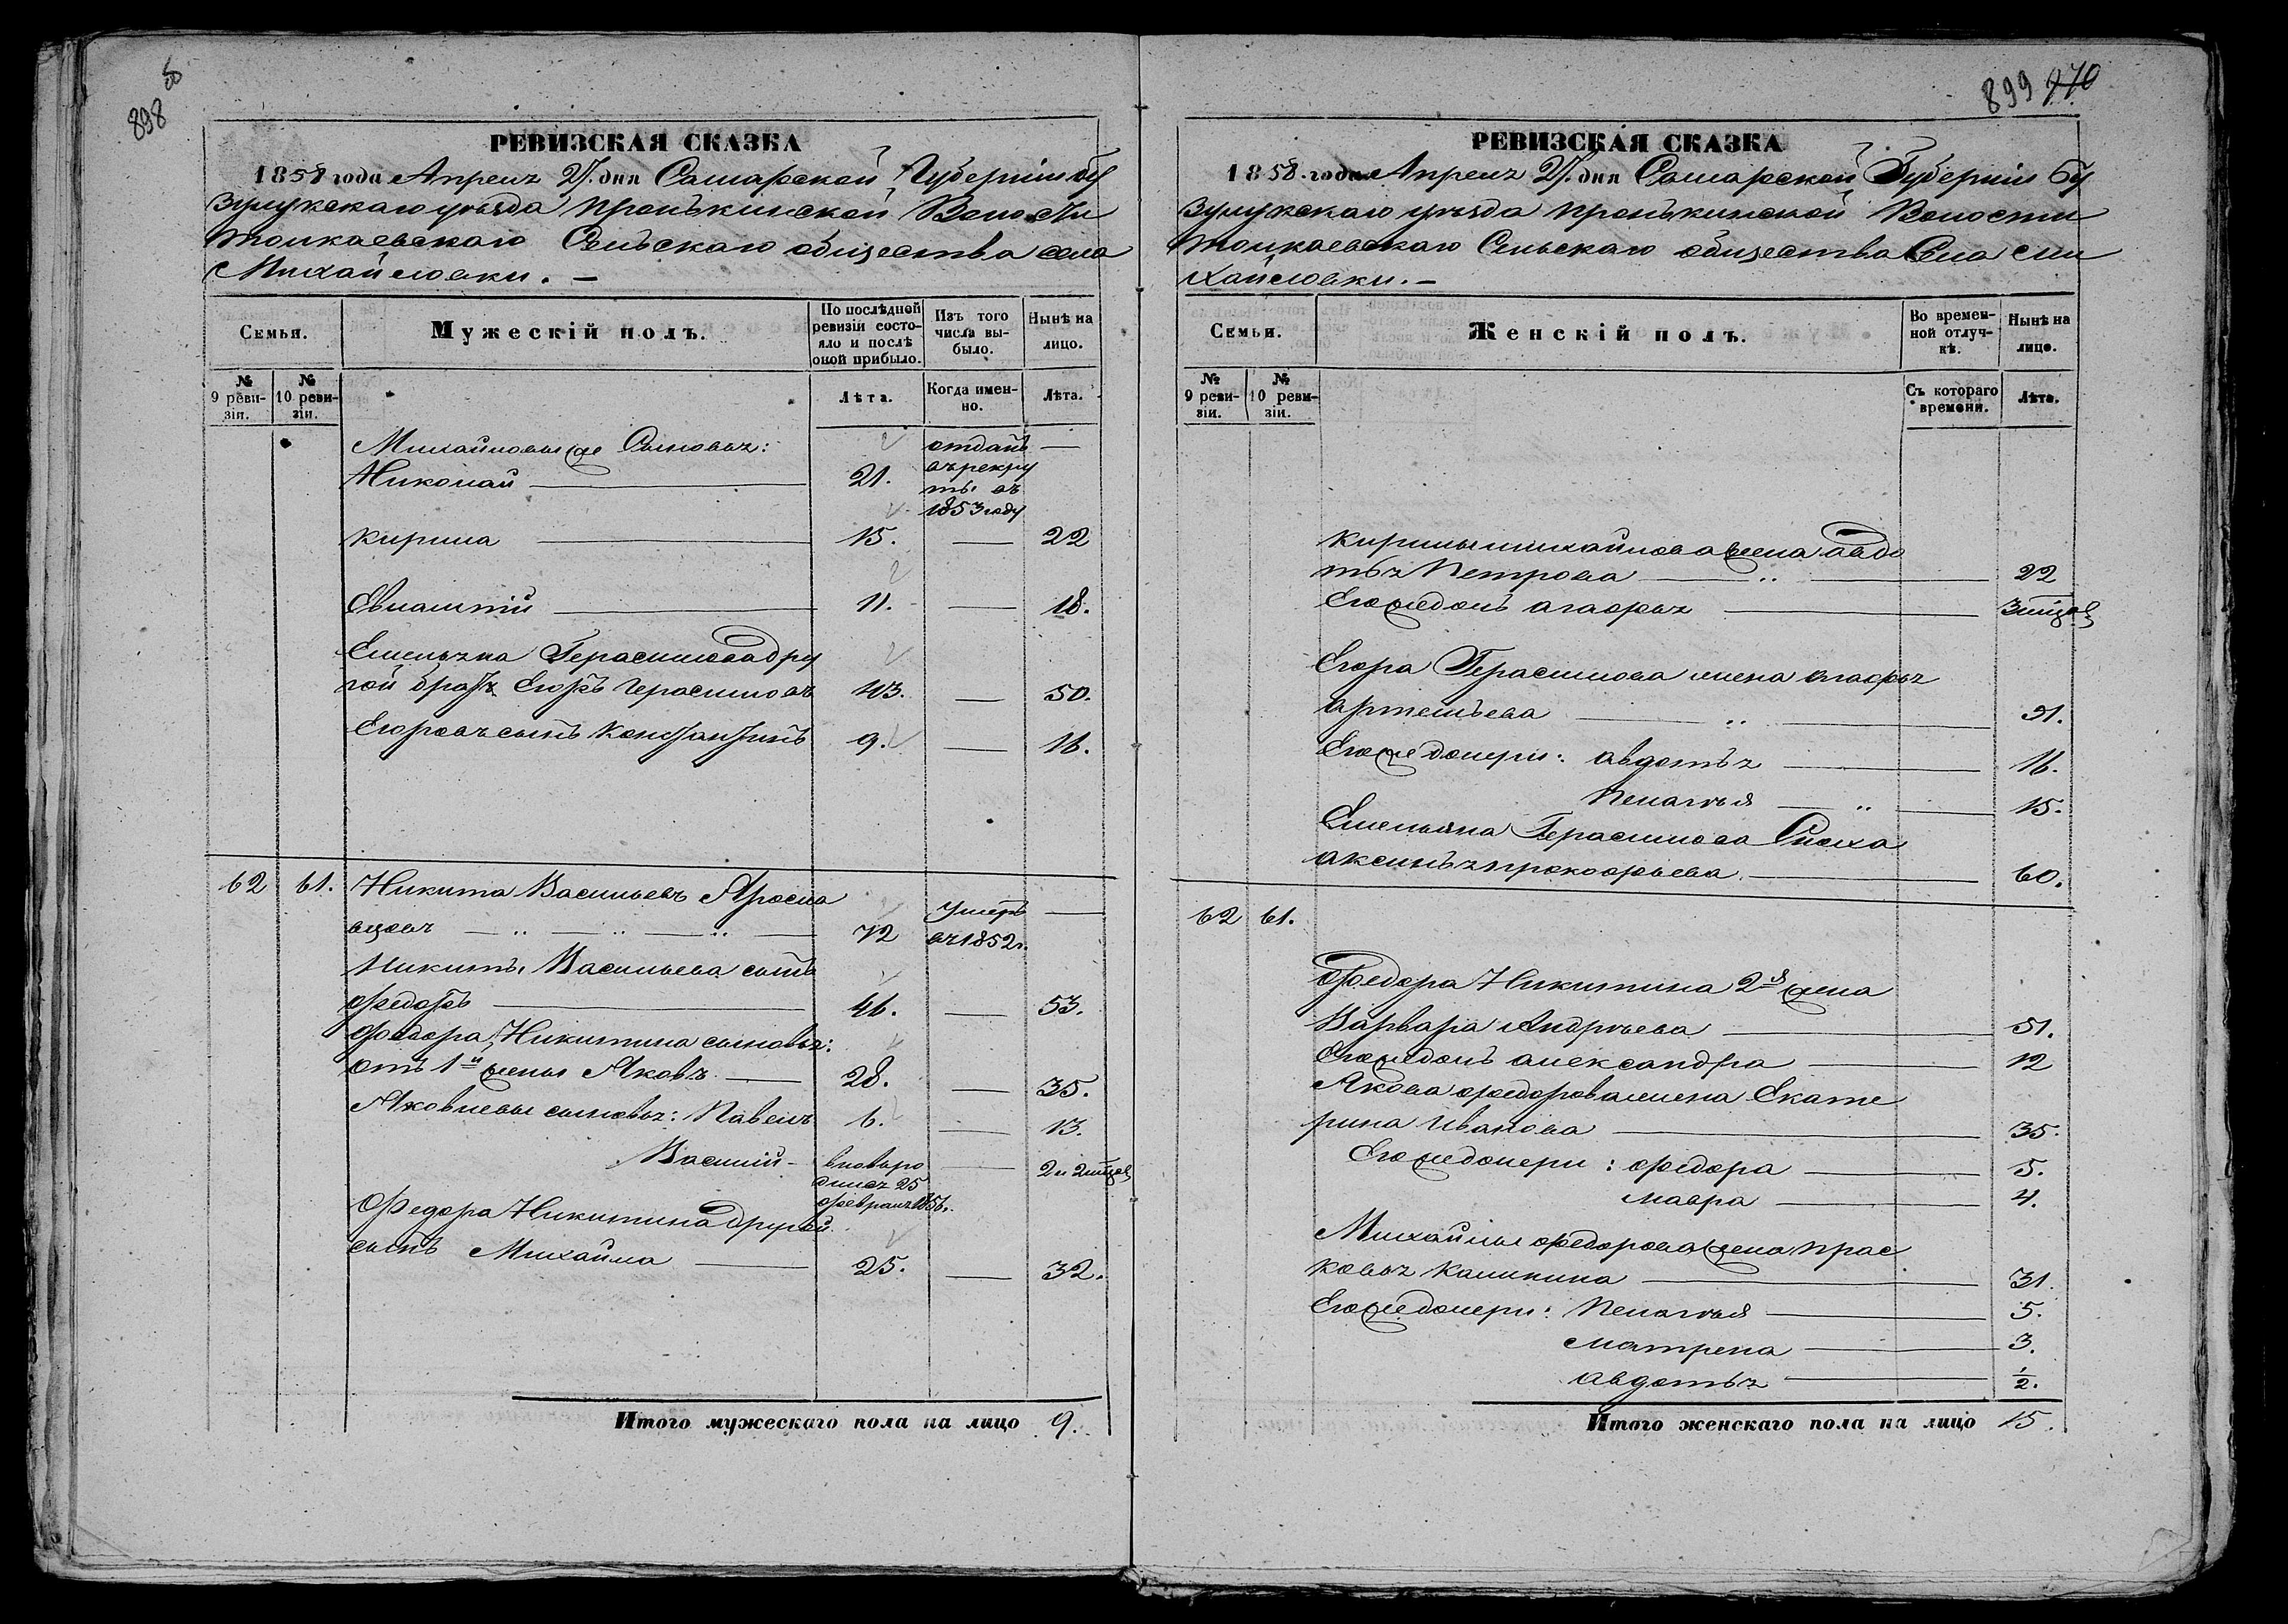 898
РЕВИЗСКАЯ СКАЗКА
1858 года Апреля 27. дня Самарской Губернии Бу
зулукскаго уѣзда Пронькинской Волости
Толкаевскаго Сельскаго общества села
Михайловки. —
Семьи.
Мужескій полъ.
По послѣдней ревизіи состояло и послѣ оной прибыло.
Изъ того числа выбыло.
Нынѣ на лицо.
№ 9 ревизіи.
№ 10 ревизіи.
Лѣта.
Когда именно.
Лѣта.
Михайловы же Сыновья: отданъ —
Николай — 21. въ рекру
ты въ
1853 году
Кирила — 15. — 22
Евлампій — 11. — 18.
Емельяна Герасимова дру
гой братъ Егоръ Герасимовъ 43. — 50.
Егоровъ сынъ Константинъ 9. — 16.
62 61. Никита Васильевъ Яросла
вцовъ — 72 умеръ — въ 1852 г.
Никиты Васильева сынъ
Федоръ — 46. — 53.
Федора Никитина сыновья:
отъ 1й жены Яковъ — 28. — 35.
Яковлевы сыновья: Павелъ 6. — 13.
Василій — вновь ро — 2 и 2 мѣсяц
дился 25
февраля 1856.
Федора Никитина другой
сынъ Михайла — 25. — 32.
Итого мужескаго пола на лицо 9.
899 770
РЕВИЗСКАЯ СКАЗКА
1858 года Апреля 27. дня Самарской Губерніи Бу
зулукскаго уѣзда Пронькинской Волости
Толкаевскаго Сельскаго общества Села Ми
хайловки. —
Семьи.
Женскій полъ.
Во временной отлучкѣ.
Нынѣ на лицо.
№ 9 ревизіи.
№ 10 ревизіи.
Съ котораго времени.
Лѣта.
Кирилы Михайлова жена Авдо
тья Петрова — 22
Его же дочь Агафья — 3 мѣсяц
Егора Герасимова жена Агафья
Артемьева — 51.
Его же дочери: Авдотья — 16.
Пелагѣя — 15.
Емельяна Герасимова Сноха
Аксинья Прокофьева — 60.
62 61.
Федора Никитина 2я жена
Варвара Андрѣева — 51.
Его же дочь Александра — 12
Якова Федорова жена Екате
рина Иванова — 35.
Его же дочери: Федора — 5.
Мавра — 4.
Михайлы Федорова жена Прас
ковья Калинина — 31
Его же дочери: Пелагѣя — 5.
Матрена — 3.
Авдотья — 1/2.
Итого женскаго пола на лицо 15.